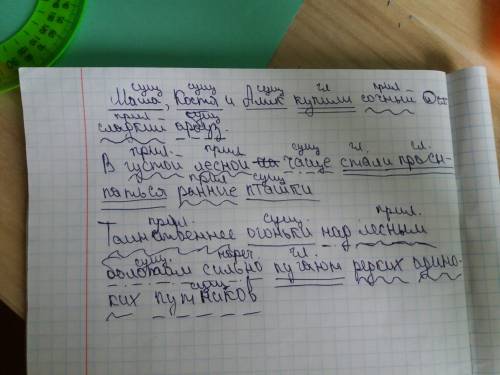 сущ сущ сущ гл прил.
Маша, Костя и Алик купили сочный и
прил сущ
сладкий арбуз.
прил. прил сущ гл. гл.
В густой лесной чаще стали просы-
прил сущ
паться ранние пташки
прил. сущ. прил.
Таинственнее огоньки над лесным
сущ. нареч гл.
болотам сильно пугают редких одино-
сущ
ких путников